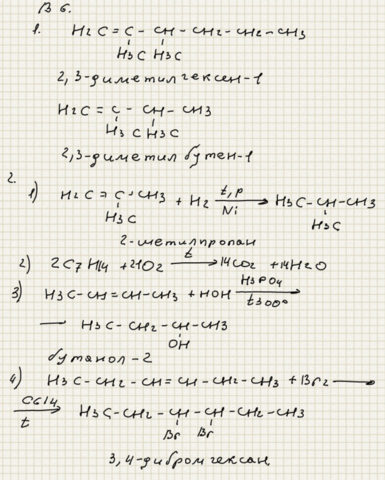 В 6.
1. H2C = C - CH - CH2 - CH2 - CH3
H3C H3C
2,3-диметилгексен-1
H2C = C - CH - CH3
H3C H3C
2,3-диметил бутен-1
2.
1) H2C = C - CH3 + H2 t,p Ni → H3C - CH - CH3
H3C H3C
2-метилпропан
2) 2C7H14 + 21O2 t → 14CO2 + 14H2O
3) H3C - CH = CH - CH3 + HOH H3PO4 t300° →
— H3C - CH2 - CH - CH3
OH
бутанол - 2
4) H3C - CH2 - CH = CH - CH2 - CH3 + Br2 →
CCl4 t → H3C - CH2 - CH - CH - CH2 - CH3
Br Br
3,4-дибромгексан